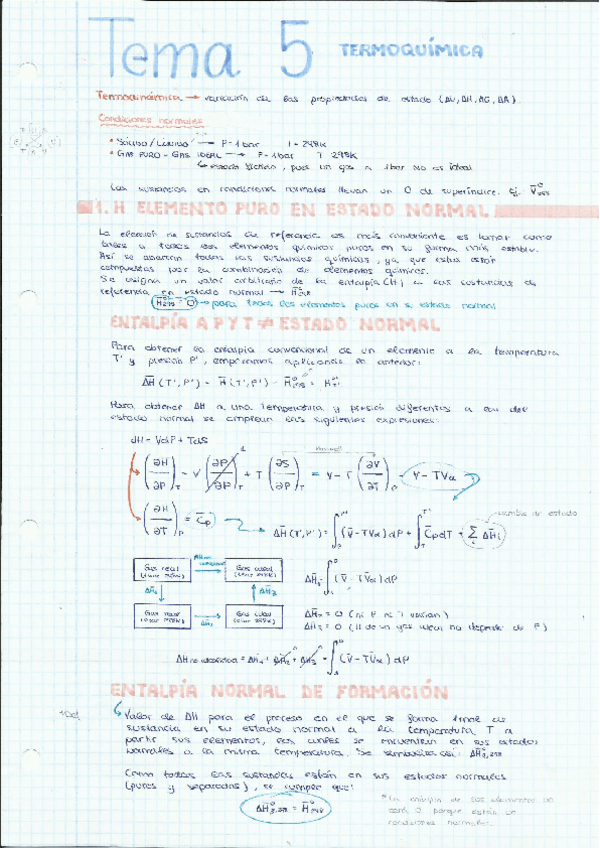 Tema 5 TERMOQUÍMICA
Termodinámica → variación de las propiedades de estado (ΔU, ΔH, ΔG, ΔA)
Condiciones normales
• Sólido/Líquido → P=1bar T=298K
• GAS PURO - GAS IDEAL → P=1bar T 298K
↳ estado ficticio, pues un gas a 1bar no es ideal
Las sustancias en condiciones normales llevan un 0 de superíndice. Ej. V̄°
1. H ELEMENTO PURO EN ESTADO NORMAL
La elección de sustancias de referencia es más conveniente es tomar como
a todos los elementos químicos puros en su forma más estable.
Así se abarcan todas las sustancias químicas, ya que estas están
compuestas por la combinación de elementos químicos.
Se asigna un valor arbitrario de la entalpía (H) a las sustancias de
referencia en estado normal → H̄°
H̄°298 = 0 → para todos los elementos puros en su estado normal
ENTALPÍA A P Y T ≠ ESTADO NORMAL
Para obtener la entalpía convencional de un elemento a la temperatura
T' y presión P', empezamos aplicando lo anterior:
ΔH̄ (T',P') = H̄ (T',P') - H̄°298 = H̄
Para obtener ΔH a una temperatura y presión diferentes a las del
estado normal se emplean las siguientes expresiones:
dH = VdP + TdS
(∂H/∂P)T = V (∂P/∂P)T + T (∂S/∂P)T = V - T (∂V/∂T)P = V - TVα
(∂H/∂T)P = C̄p → ΔH̄ (T',P') = ∫(V̄ - TV̄α) dP + ∫C̄p dT + ΣΔH̄i
cambio de estado
Gas real Gas ideal
ΔH̄1 ΔH̄3 ΔH̄1 = ∫(V̄ - TV̄α) dP
Gas real Gas ideal
ΔH̄2
ΔH̄2 = 0 (ni P ni T varían)
ΔH̄3 = 0 (H de un gas ideal no depende de P)
ΔH re-ideal = ΔH̄1 + ΔH̄2 + ΔH̄3 = ∫(V̄ - TV̄α) dP
ENTALPÍA NORMAL DE FORMACIÓN
Valor de ΔH para el proceso en el que se forma 1mol de
sustancia en su estado normal a la temperatura T a
partir sus elementos, los cuales se encuentran en sus estados
normales a la misma temperatura. Se simboliza así: ΔH̄°f,298
Como todas las sustancias están en sus estados normales
(puros y separados), se cumple que:
ΔH°f,298 = H̄°298
* La entalpía de los elementos
será 0 porque están en
condiciones normales.